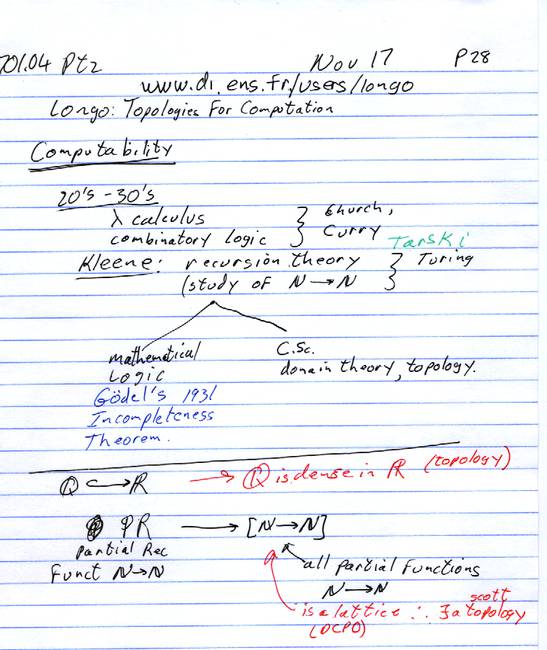 701.04 Pt2 Nov 17 P28
www.di.ens.fr/users/longo
Longo: Topologies For Computation
Computability
20's-30's
λ calculus } Church,
combinatory logic } Curry
Tarski
Kleene: recursion theory } Turing
(study of N → N }
mathematical
Logic
Gödel's 1931
Incompleteness
Theorem.
C.Sc.
domain theory, topology.
Q ↪ R → Q is dense in R (topology)
PR → [N → N]
Partial Rec
Funct N → N
all partial functions
N → N
is a lattice ∴ ∃ a scott topology
(DCPO)